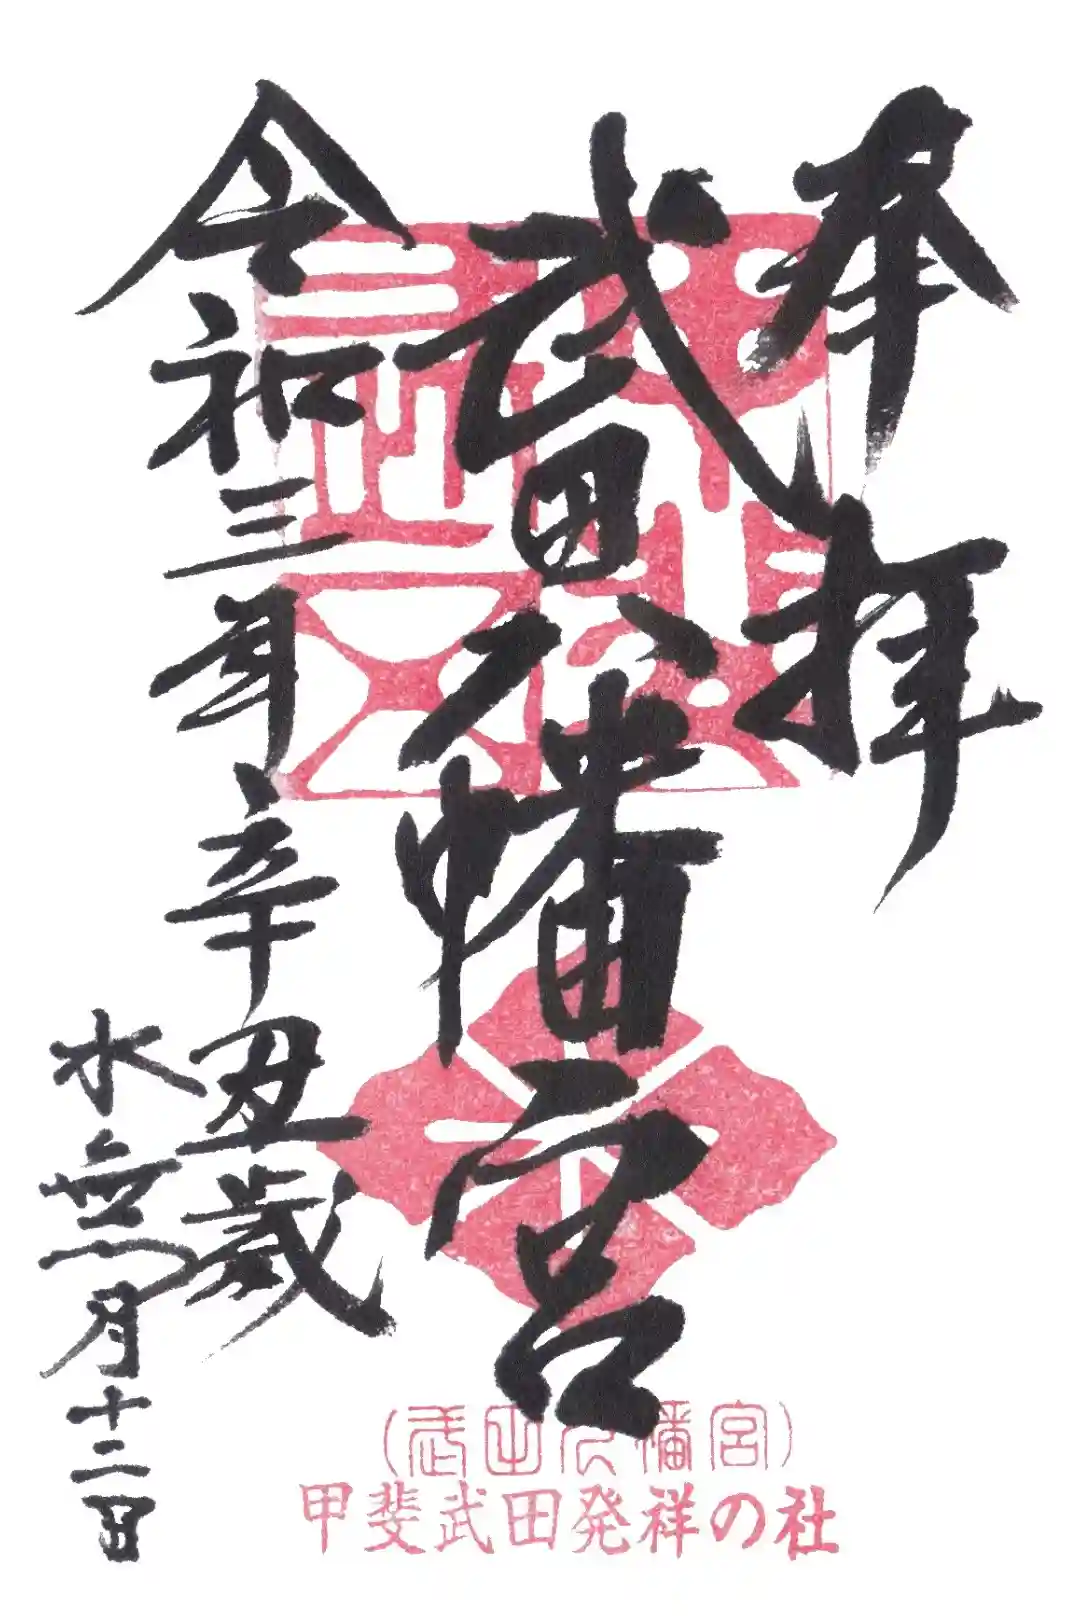 奉拝
武田八幡宮
令和三年辛丑歳
水無月十二日
(武田八幡宮)
甲斐武田発祥の社